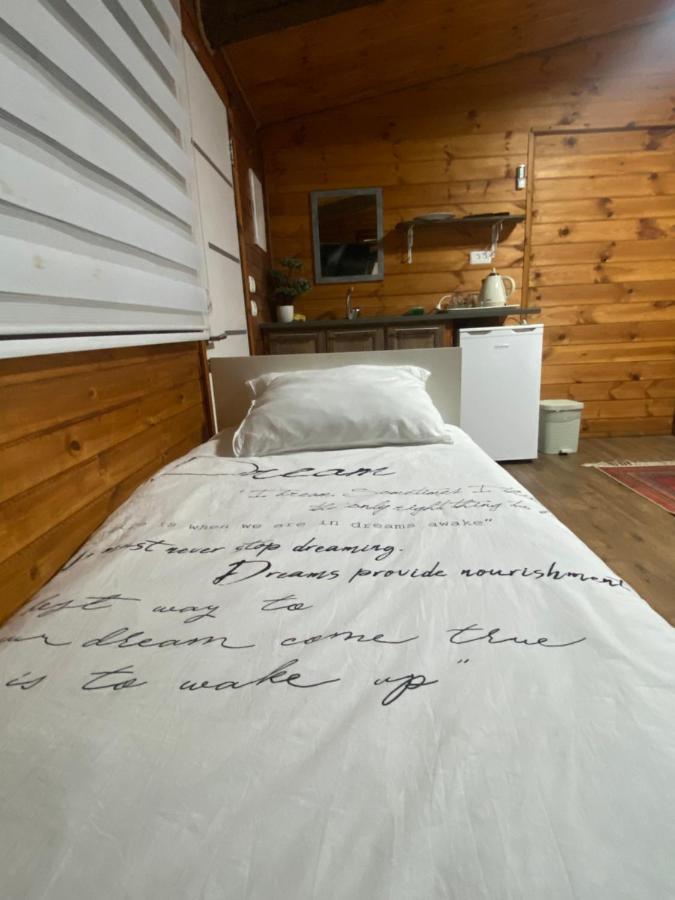 Dream
"I dream. Sometimes I
the only right thing
is when we are in dreams awake"
must never stop dreaming.
Dreams provide nourishment
way to
dream come true
is to wake up"